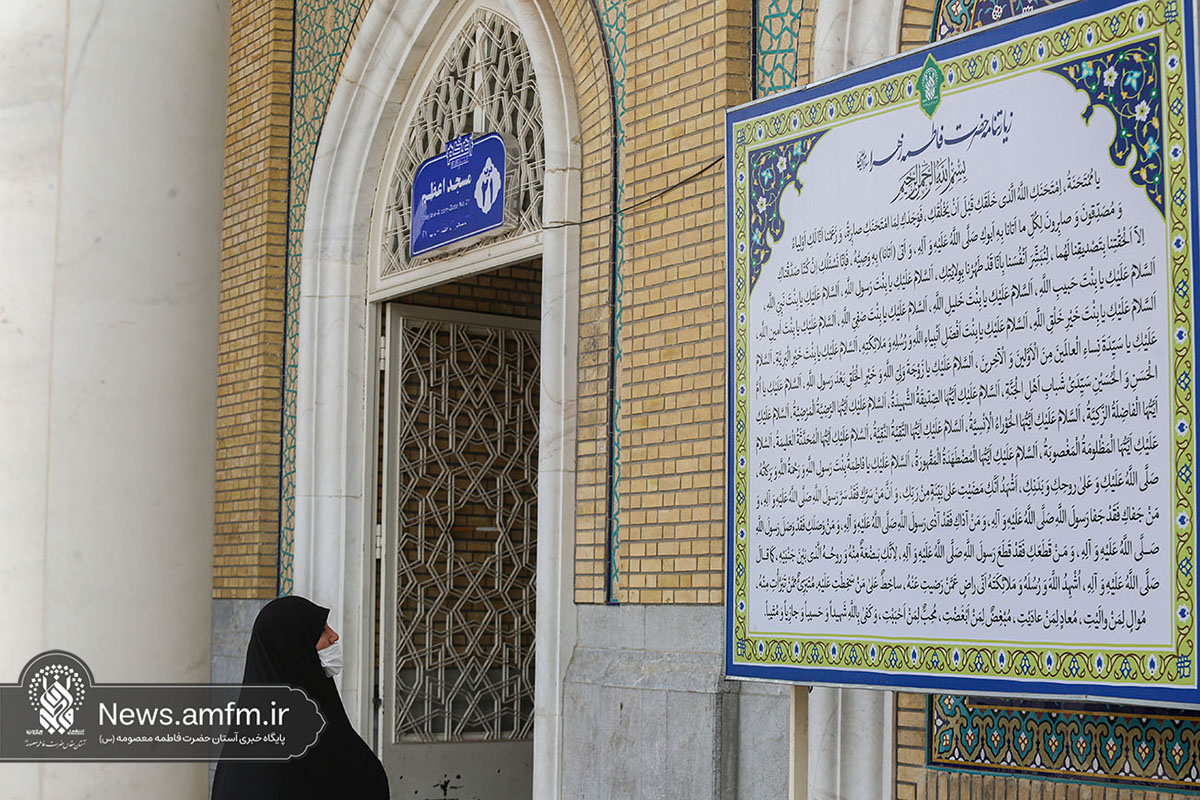 مسجد اعظم
۲۱
زیارتنامه حضرت فاطمه زهرا
بِسْمِ اللهِ الرَّحْمنِ الرَّحیمِ
یا مُمْتَحَنَةُ، اِمْتَحَنَكِ اللهُ الَّذی خَلَقَكِ قَبْلَ اَنْ یَخْلُقَكِ، فَوَجَدَكِ لِمَا امْتَحَنَكِ صابِرَةً، وَ زَعَمْنا اَنّا لَكِ اَوْلیاءُ
وَ مُصَدِّقونَ وَ صابِرونَ لِكُلِّ ما اَتانا بِهِ اَبوكِ صَلَّی اللهُ عَلَیْهِ وَ آلِهِ، وَ اَتی (اَتانا) بِهِ وَصِیُّهُ، فَاِنّا نَسْئَلُكِ اِنْ كُنّا صَدَّقْناكِ
اِلاّ اَلْحَقْتِنا بِتَصْدیقِنا لَهُما، لِنُبَشِّرَ اَنْفُسَنا بِاَنّا قَدْ طَهُرْنا بِوِلایَتِكِ، اَلسَّلامُ عَلَیْكِ یا بِنْتَ رَسولِ اللهِ، اَلسَّلامُ عَلَیْكِ یا بِنْتَ نَبِیِّ اللهِ،
اَلسَّلامُ عَلَیْكِ یا بِنْتَ حَبیبِ اللهِ، اَلسَّلامُ عَلَیْكِ یا بِنْتَ خَلیلِ اللهِ، اَلسَّلامُ عَلَیْكِ یا بِنْتَ صَفِیِّ اللهِ، اَلسَّلامُ عَلَیْكِ یا بِنْتَ اَمینِ اللهِ،
اَلسَّلامُ عَلَیْكِ یا بِنْتَ خَیْرِ خَلْقِ اللهِ، اَلسَّلامُ عَلَیْكِ یا بِنْتَ اَفْضَلِ اَنْبِیاءِ اللهِ وَ رُسُلِهِ وَ مَلائِكَتِهِ، اَلسَّلامُ عَلَیْكِ یا بِنْتَ خَیْرِ الْبَرِیَّةِ، اَلسَّلامُ
عَلَیْكِ یا سَیِّدَةَ نِساءِ الْعالَمینَ مِنَ الْاَوَّلینَ وَ الْاخِرینَ، اَلسَّلامُ عَلَیْكِ یا زَوْجَةَ وَلِیِّ اللهِ وَ خَیْرِ الْخَلْقِ بَعْدَ رَسولِ اللهِ، اَلسَّلامُ عَلَیْكِ یا اُمَّ
الْحَسَنِ وَ الْحُسَیْنِ سَیِّدَیْ شَبابِ اَهْلِ الْجَنَّةِ، اَلسَّلامُ عَلَیْكِ اَیَّتُهَا الصِّدّیقَةُ الشَّهیدَةُ، اَلسَّلامُ عَلَیْكِ اَیَّتُهَا الرَّضِیَّةُ الْمَرْضِیَّةُ، اَلسَّلامُ عَلَیْكِ
اَیَّتُهَا الْفاضِلَةُ الزَّكِیَّةُ، اَلسَّلامُ عَلَیْكِ اَیَّتُهَا الْحَوْراءُ الْاِنْسِیَّةُ، اَلسَّلامُ عَلَیْكِ اَیَّتُهَا التَّقِیَّةُ النَّقِیَّةُ، اَلسَّلامُ عَلَیْكِ اَیَّتُهَا الْمُحَدَّثَةُ الْعَلیمَةُ، اَلسَّلامُ
عَلَیْكِ اَیَّتُهَا الْمَظْلومَةُ الْمَغْصوبَةُ، اَلسَّلامُ عَلَیْكِ اَیَّتُهَا الْمُضْطَهَدَةُ الْمَقْهورَةُ، اَلسَّلامُ عَلَیْكِ یا فاطِمَةُ بِنْتَ رَسولِ اللهِ وَ رَحْمَةُ اللهِ وَ بَرَكاتُهُ،
صَلَّی اللهُ عَلَیْكِ وَ عَلی روحِكِ وَ بَدَنِكِ، اَشْهَدُ اَنَّكِ مَضَیْتِ عَلی بَیِّنَةٍ مِنْ رَبِّكِ، وَ اَنَّ مَنْ سَرَّكِ فَقَدْ سَرَّ رَسولَ اللهِ صَلَّی اللهُ عَلَیْهِ وَ آلِهِ، وَ
مَنْ جَفاكِ فَقَدْ جَفا رَسولَ اللهِ صَلَّی اللهُ عَلَیْهِ وَ آلِهِ، وَ مَنْ آذاكِ فَقَدْ آذی رَسولَ اللهِ صَلَّی اللهُ عَلَیْهِ وَ آلِهِ، وَ مَنْ وَصَلَكِ فَقَدْ وَصَلَ رَسولَ اللهِ
صَلَّی اللهُ عَلَیْهِ وَ آلِهِ، وَ مَنْ قَطَعَكِ فَقَدْ قَطَعَ رَسولَ اللهِ صَلَّی اللهُ عَلَیْهِ وَ آلِهِ، لِاَنَّكِ بَضْعَةٌ مِنْهُ وَ روحُهُ الَّذی بَیْنَ جَنْبَیْهِ، كَما قالَ
صَلَّی اللهُ عَلَیْهِ وَ آلِهِ، اُشْهِدُ اللهَ وَ رُسُلَهُ وَ مَلائِكَتَهُ اَنّی راضٍ عَمَّنْ رَضیتِ عَنْهُ، ساخِطٌ عَلی مَنْ سَخِطْتِ عَلَیْهِ، مُتَبَرِّئٌ مِمَّنْ تَبَرَّأْتِ مِنْهُ،
مُوالٍ لِمَنْ والَیْتِ، مُعادٍ لِمَنْ عادَیْتِ، مُبْغِضٌ لِمَنْ اَبْغَضْتِ، مُحِبٌّ لِمَنْ اَحْبَبْتِ، وَ كَفی بِاللهِ شَهیداً وَ حَسیباً وَ جازِیاً وَ مُثیباً.
News.amfm.ir
پایگاه خبری آستان حضرت فاطمه معصومه (س)
آستان مقدس حضرت فاطمه معصومه